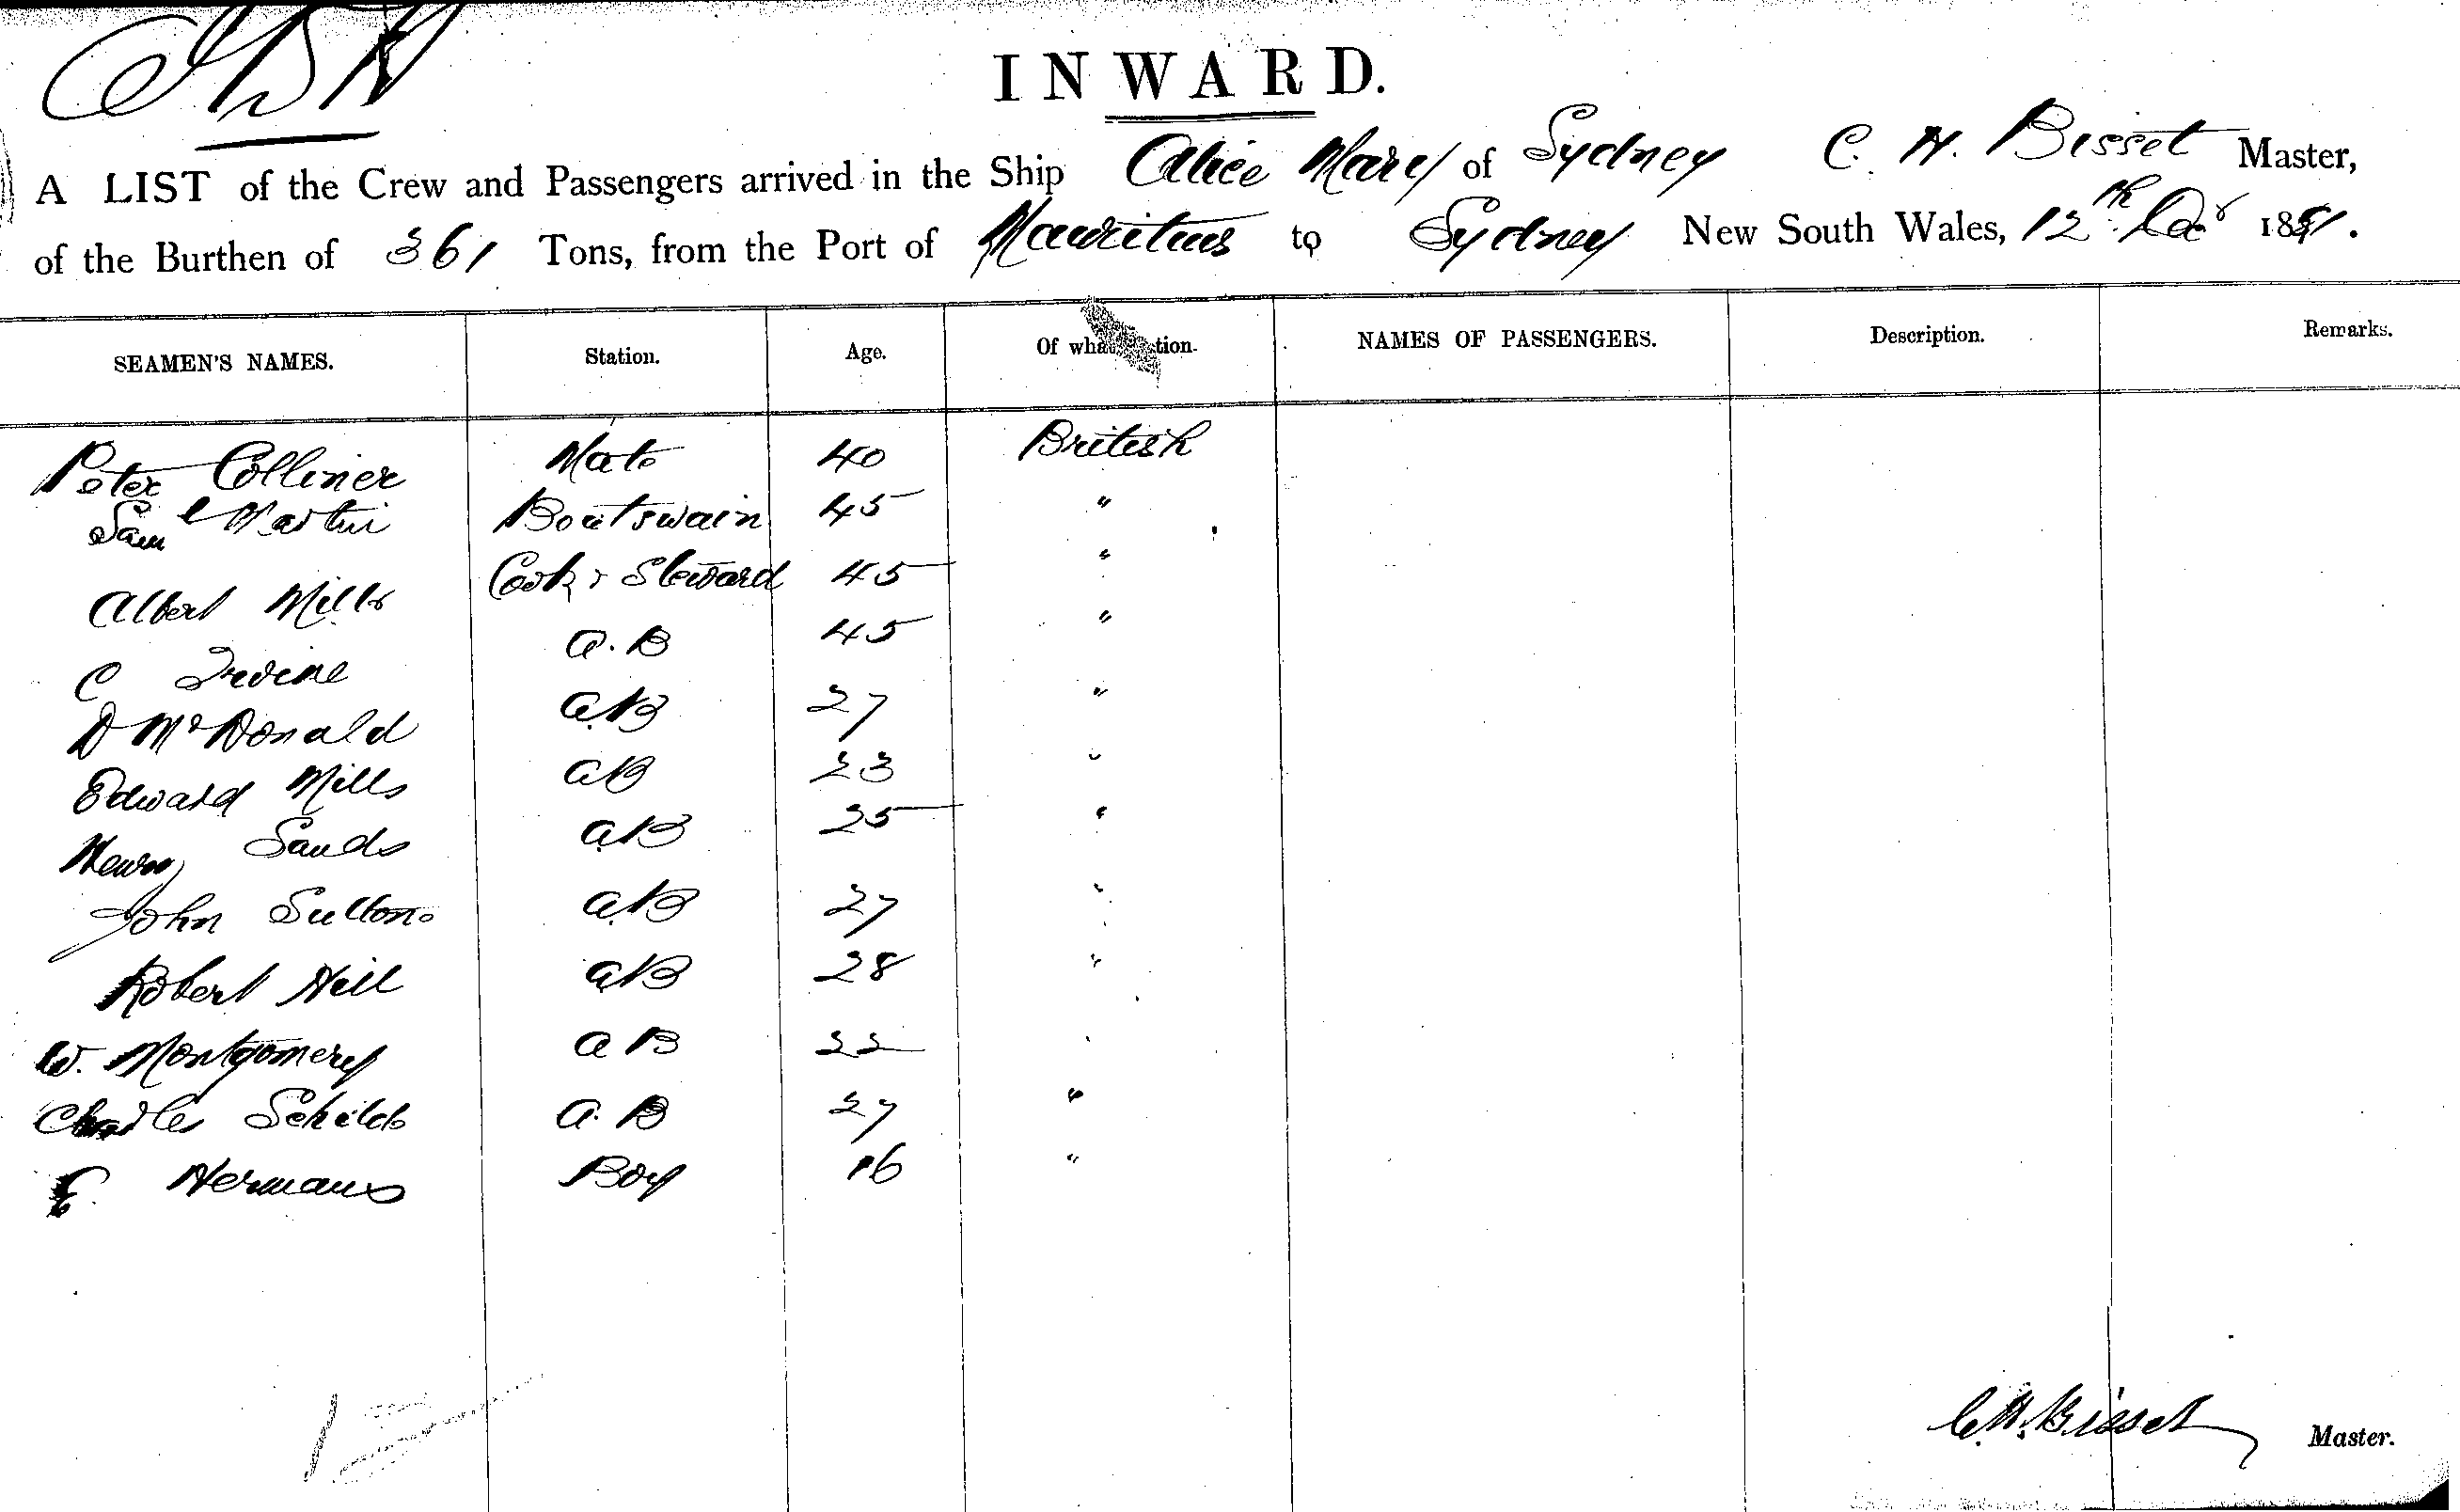 INWARD.
A LIST of the Crew and Passengers arrived in the Ship Alice Mary of Sydney C. H. Bisset Master,
of the Burthen of 361 Tons, from the Port of Mauritius to Sydney New South Wales, 12th Decr 1881.
SEAMEN'S NAMES. Station. Age. Of what tion. NAMES OF PASSENGERS. Description. Remarks.
Peter Colliner Mate 40 British
Saml Martin Boatswain 45 "
Albert Mills Cook & Steward 45 "
C Irvine A.B 45 "
D McDonald A.B 27 "
Edward Mills AB 23 "
Henry Sands AB 25 "
John Sutton A.B 27 "
Robert Hill AB 28 "
W. Montgomery A B 22 "
Charles Schild A. B 27 "
Hermans Boy 16 "
C.H. Bisset Master.